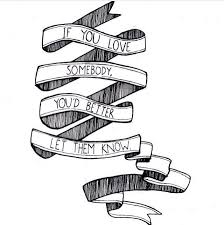 IF YOU LOVE
SOMEBODY,
YOU'D BETTER
LET THEM KNOW.